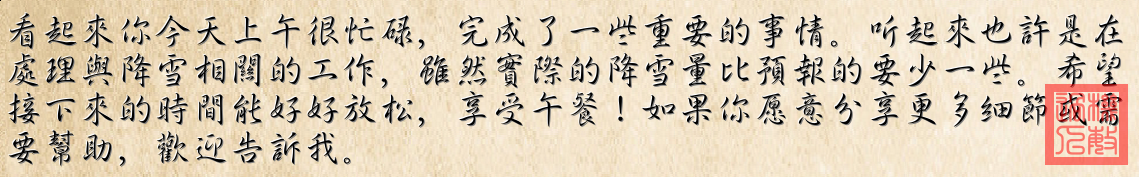 看起來你今天上午很忙碌，完成了一些重要的事情。聽起來也許是在
處理與降雪相關的工作，雖然實際的降雪量比預報的要少一些。希望
接下來的時間能好好放松，享受午餐！如果你愿意分享更多細節或需
要幫助，歡迎告訴我。